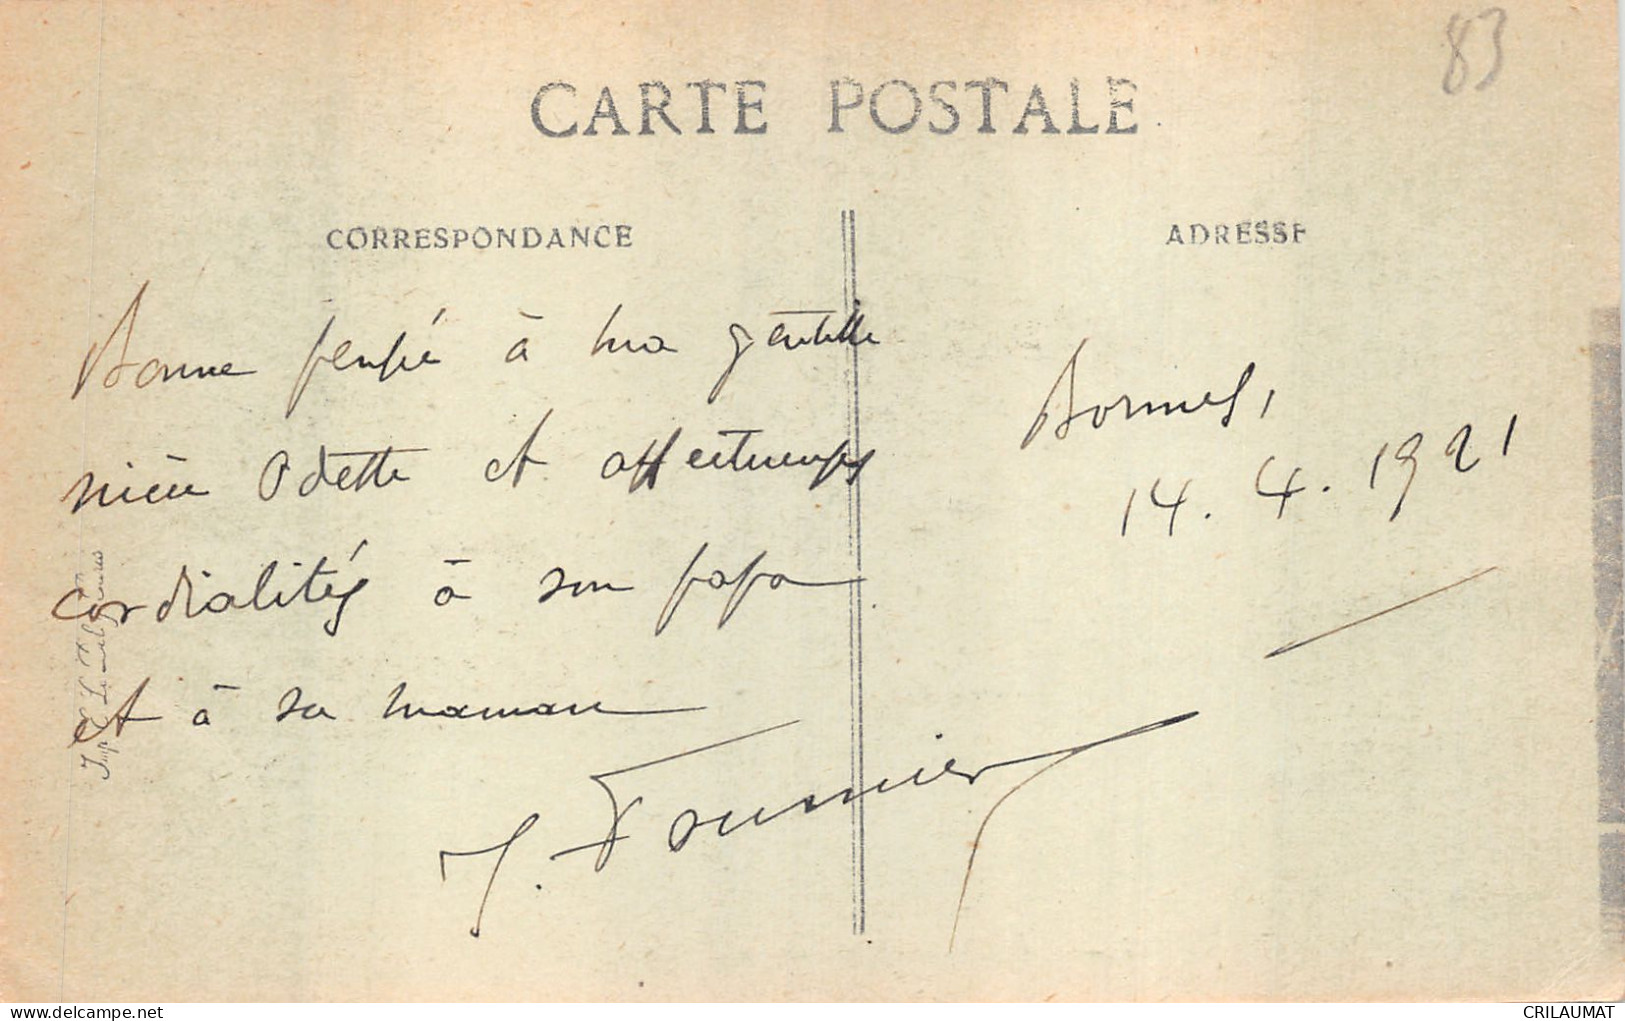 83
CARTE POSTALE
CORRESPONDANCE
ADRESSE
Bonne pensée à ma gentille
nièce Odette et affectueuses
cordialités à son papa
et à sa maman
J. Fournier
Bormes,
14.4.1921
delcampe.net
CRILAUMAT